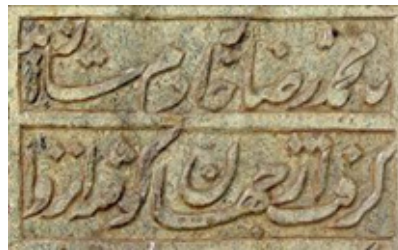 محمد رضا خادم
گرفت از جهان گوشه انزوا